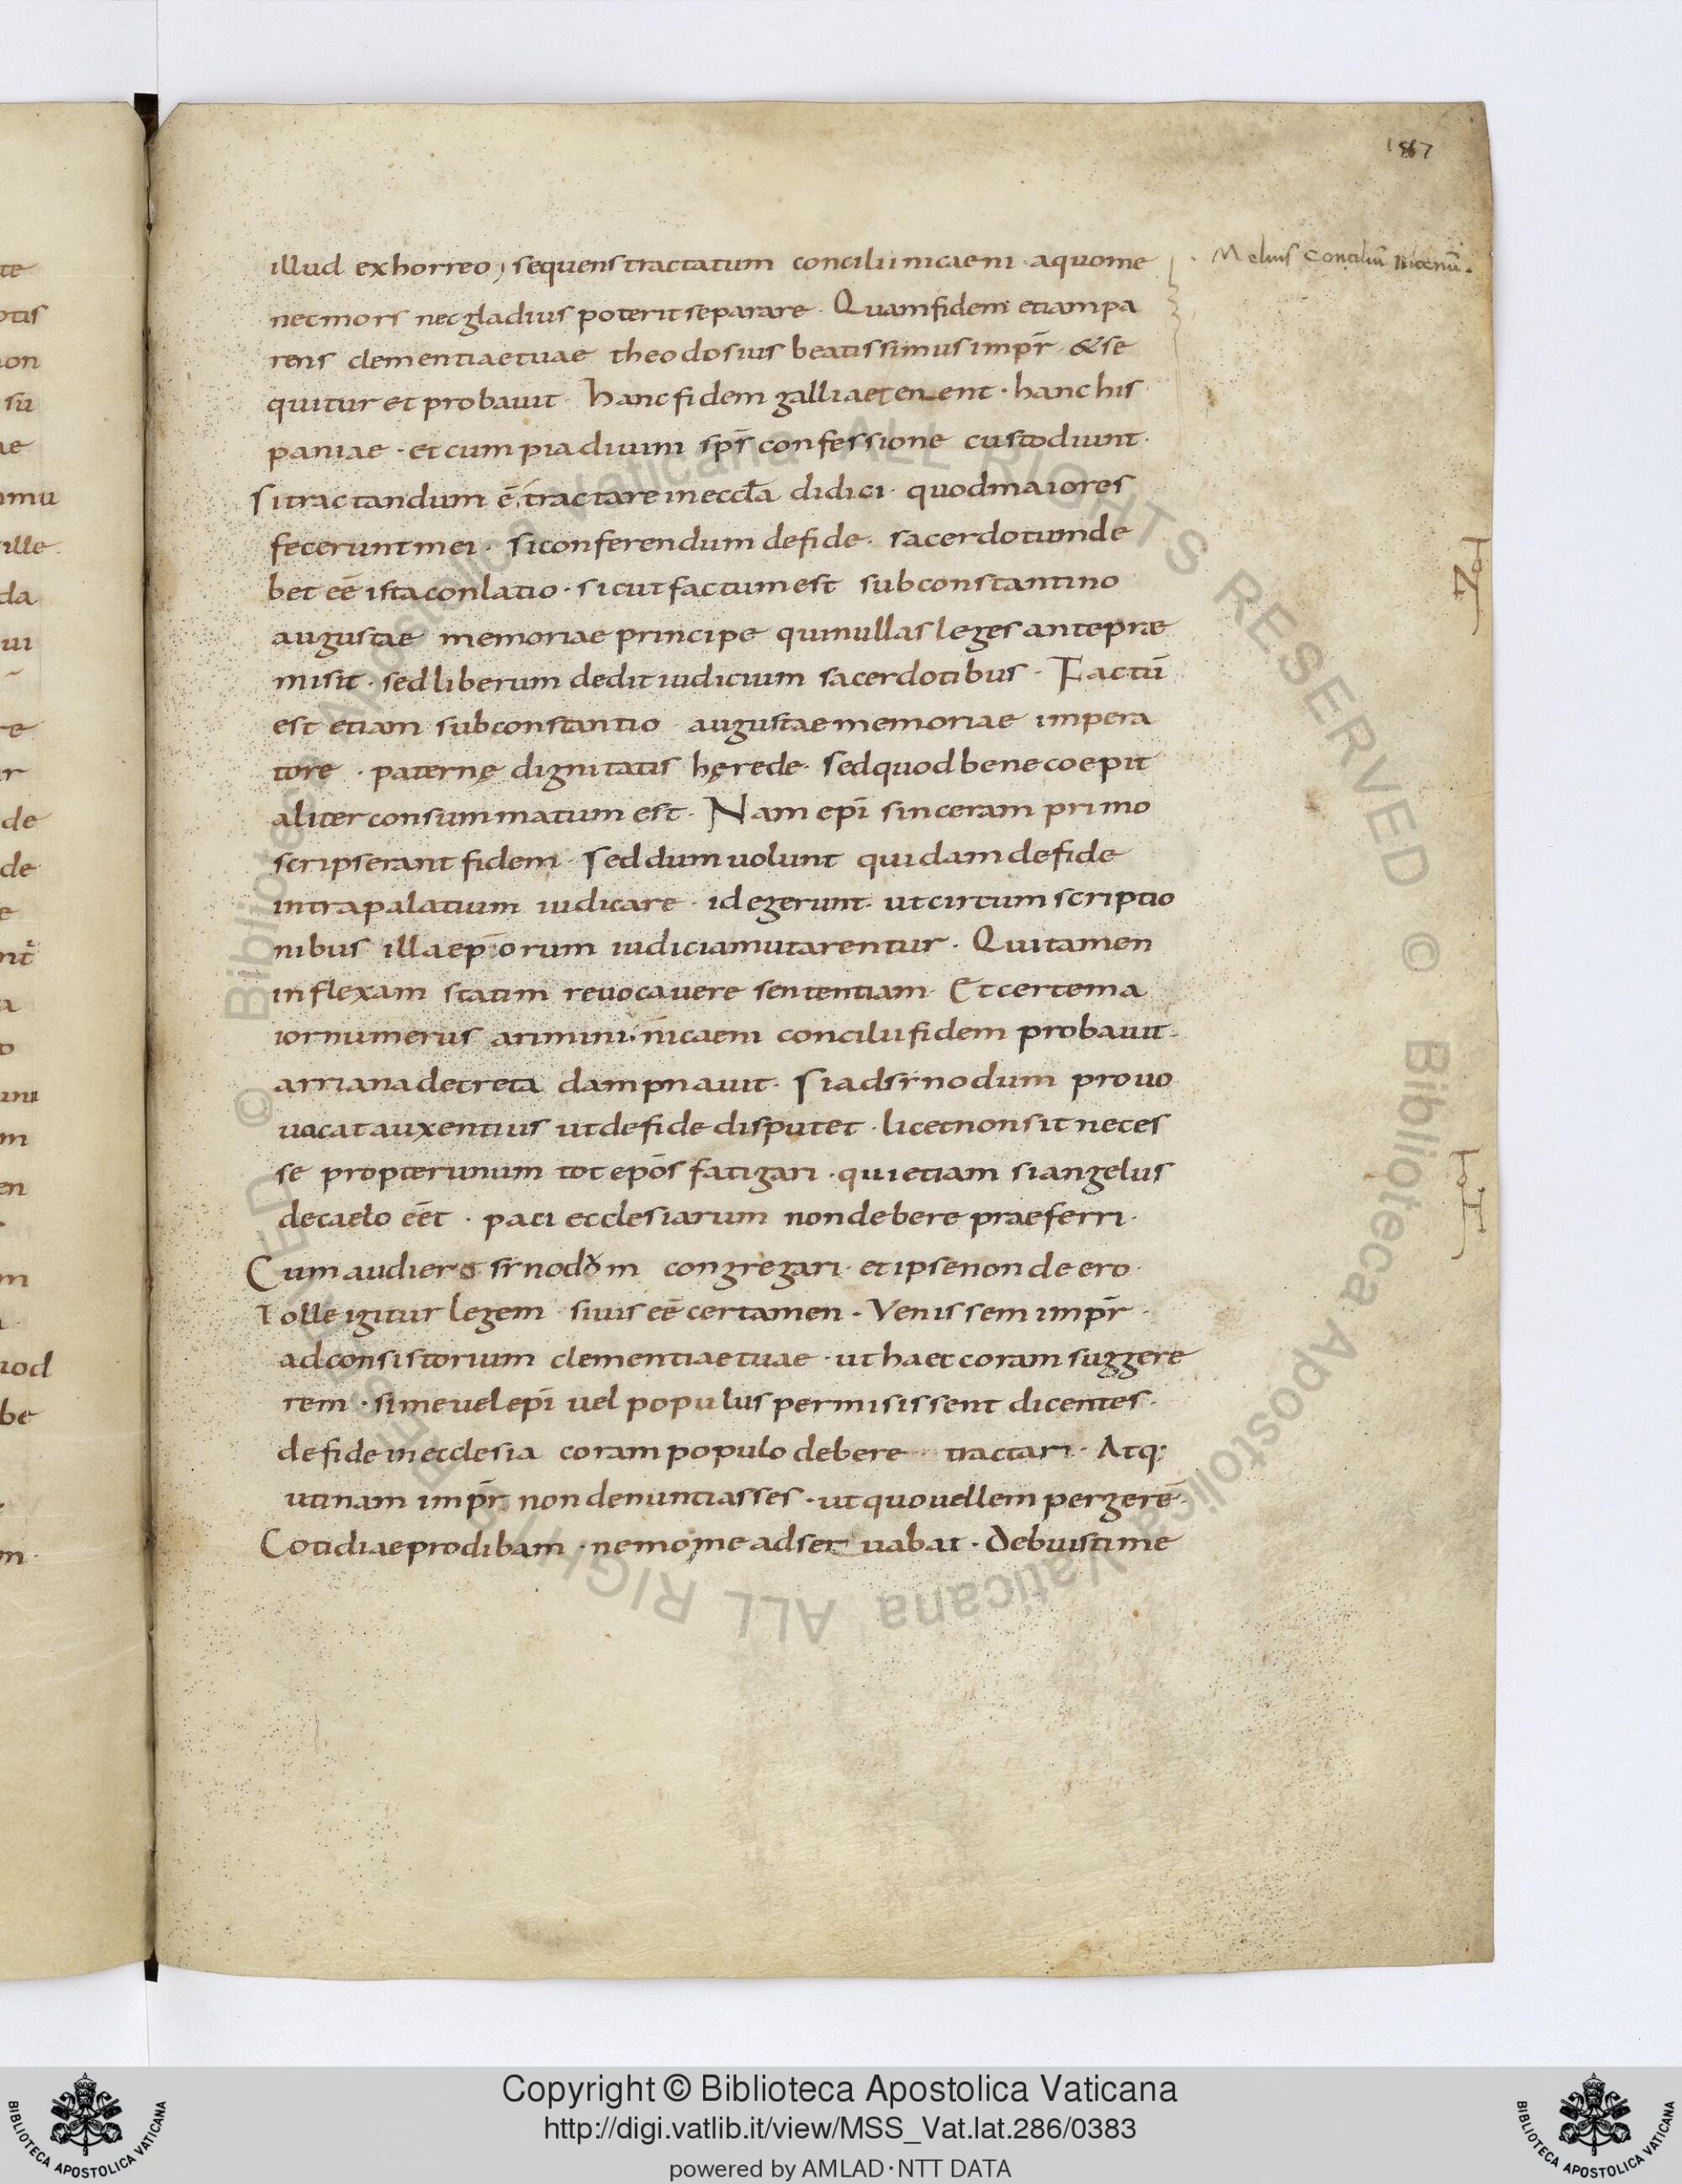 187
illud exhorreo, sequens tractatum concilii nicaeni · a quo me
· Melius Conciliū nicenū.
nec mors nec gladius poterit separare · Quam fidem etiam pa
rens clementiae tuae theodosius beatissimus imp̄r · & se
quitur et probauit · hanc fidem galliae tenent · hanc his
paniae · et cum pia diuini sp̄s confessione custodiunt ·
si tractandum ē, tractare in eccl̄a didici · quod maiores
fecerunt mei · si conferendum de fide · sacerdotum de
bet eē ista conlatio · sicut factum est sub constantino
augustae memoriae principe qui nullas leges ante prae
misit · sed liberum dedit iudicium sacerdotibus · Factū
est etiam sub constantio augustae memoriae impera
tore · paternę dignitatis hęrede · sed quod bene coepit
aliter consummatum est · Nam ep̄i sinceram primo
scripserant fidem · sed dum uolunt quidam de fide
intra palatium iudicare · id egerunt · ut circumscriptio
nibus illa ep̄orum iudicia mutarentur · Qui tamen
inflexam statim reuocauere sententiam · Et certe ma
ior numerus arimini · nicaeni concilii fidem probauit ·
arriana decreta dampnauit · Si ad synodum prouo
uocat auxentius ut de fide disputet · licet non sit neces
se propter unum tot ep̄os fatigari · qui etiam si angelus
de caelo eēt · paci ecclesiarum non debere praeferri ·
Cum audiero synodum congregari · et ipse non deero ·
Tolle igitur legem si uis eē certamen · Venissem imp̄r ·
ad consistorium clementiae tuae · ut haec coram suggere
rem · si me uel ep̄i uel populus permisissent dicentes ·
de fide in ecclesia coram populo debere tractari · Atq;
utinam imp̄r non denuntiasses · ut quo uellem pergerē ·
Cotidiae prodibam · nemo me adseruabat · debuisti me
© Biblioteca Apostolica Vaticana ALL RIGHTS RESERVED © Biblioteca Apostolica Vaticana ALL RIGHTS RESERVED
Copyright © Biblioteca Apostolica Vaticana
http://digi.vatlib.it/view/MSS_Vat.lat.286/0383
powered by AMLAD·NTT DATA
BIBLIOTECA APOSTOLICA VATICANA
BIBLIOTECA APOSTOLICA VATICANA